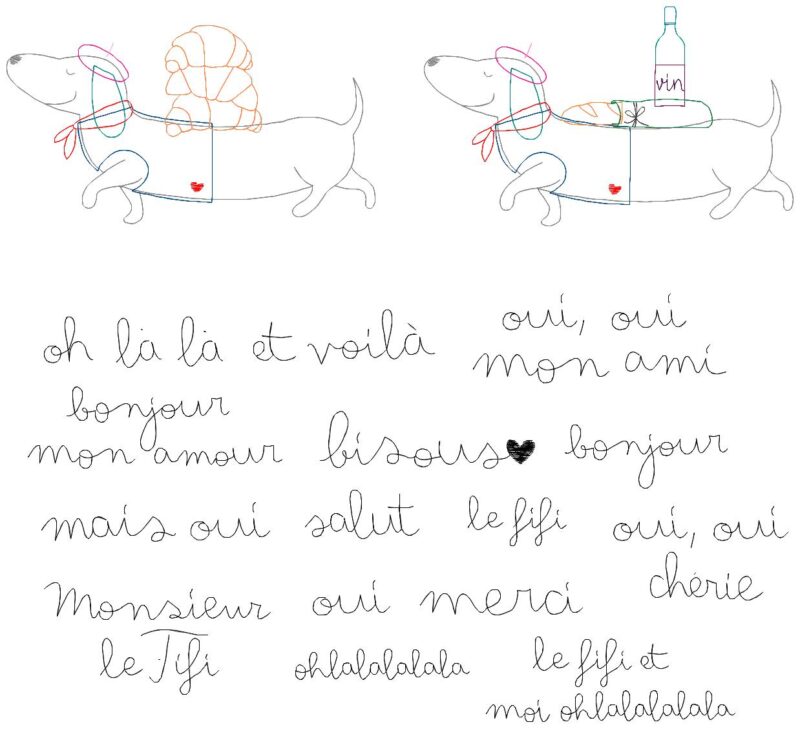 vin
oh là là
et voilà
oui, oui
mon ami
bonjour
mon amour
bisous
bonjour
mais oui
salut
le fifi
oui, oui
chérie
Monsieur
oui
merci
le Tifi
ohlalalalala
le fifi et
moi ohlalalalala